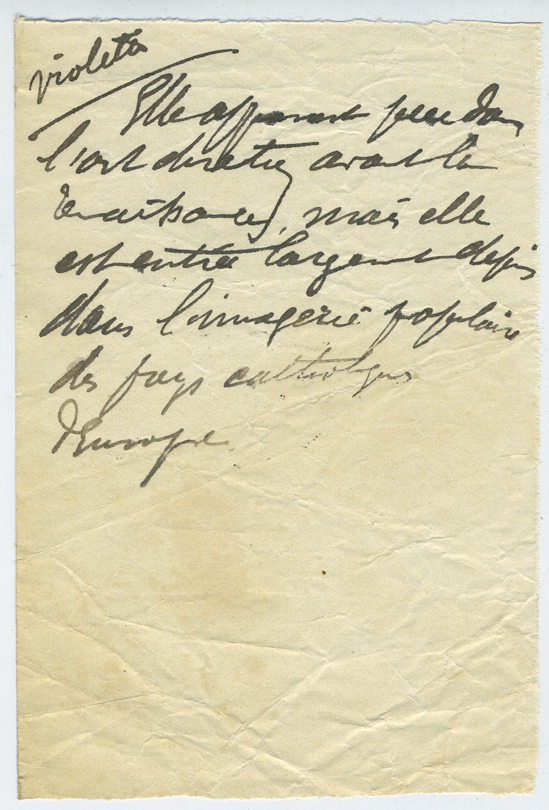 violeta
Elle apparait peu dans
l'art chrétien avant la
Renaissance, mais elle
est entrée largement depuis
dans l'imagerie populaire
des pays catholiques
d'Europe.